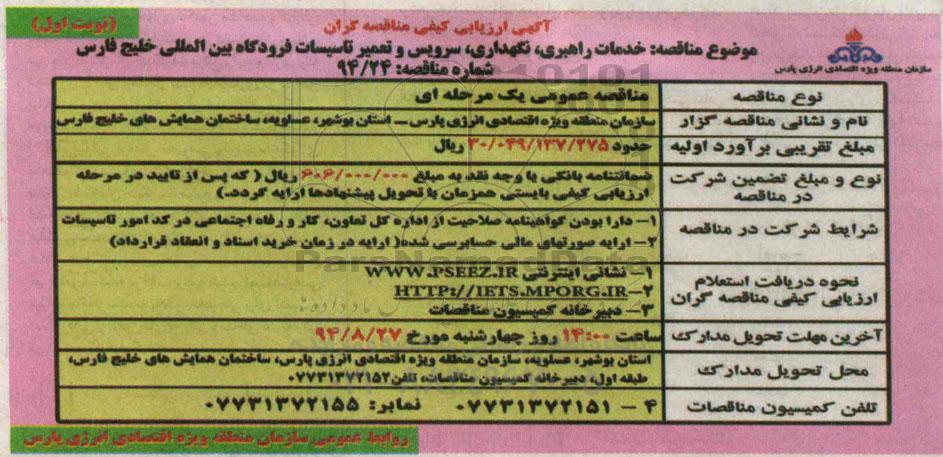 (نوبت اول)
آگهی ارزیابی کیفی مناقصه گران
موضوع مناقصه: خدمات راهبری، نگهداری، سرویس و تعمیر تاسیسات فرودگاه بین المللی خلیج فارس
شماره مناقصه: ۹۴/۲۴
سازمان منطقه ویژه اقتصادی انرژی پارس
نوع مناقصه
مناقصه عمومی یک مرحله ای
نام و نشانی مناقصه گزار
سازمان منطقه ویژه اقتصادی انرژی پارس – استان بوشهر، عسلویه، ساختمان همایش های خلیج فارس
مبلغ تقریبی برآورد اولیه
حدود ۳۰/۰۴۹/۱۳۷/۲۷۵ ریال
نوع و مبلغ تضمین شرکت
در مناقصه
ضمانتنامه بانکی یا وجه نقد به مبلغ ۶۰۶/۰۰۰/۰۰۰ ریال ( که پس از تایید در مرحله
ارزیابی کیفی بایستی همزمان با تحویل پیشنهادها ارایه گردد.)
شرایط شرکت در مناقصه
۱– دارا بودن گواهینامه صلاحیت از اداره کل تعاون، کار و رفاه اجتماعی در کد امور تاسیسات
۲– ارایه صورتهای مالی حسابرسی شده( ارایه در زمان خرید اسناد و انعقاد قرارداد)
نحوه دریافت استعلام
ارزیابی کیفی مناقصه گران
۱– نشانی اینترنتی WWW.PSEEZ.IR
۲–HTTP://IETS.MPORG.IR
۳– دبیرخانه کمیسیون مناقصات
آخرین مهلت تحویل مدارک
ساعت ۱۴:۰۰ روز چهارشنبه مورخ ۹۴/۸/۲۷
محل تحویل مدارک
استان بوشهر، عسلویه، سازمان منطقه ویژه اقتصادی انرژی پارس، ساختمان همایش های خلیج فارس،
طبقه اول، دبیرخانه کمیسیون مناقصات، تلفن۰۷۷۳۱۳۷۲۱۵۲
تلفن کمیسیون مناقصات
۴ – ۰۷۷۳۱۳۷۲۱۵۱ نمابر: ۰۷۷۳۱۳۷۲۱۵۵
روابط عمومی سازمان منطقه ویژه اقتصادی انرژی پارس
ParsNamadData